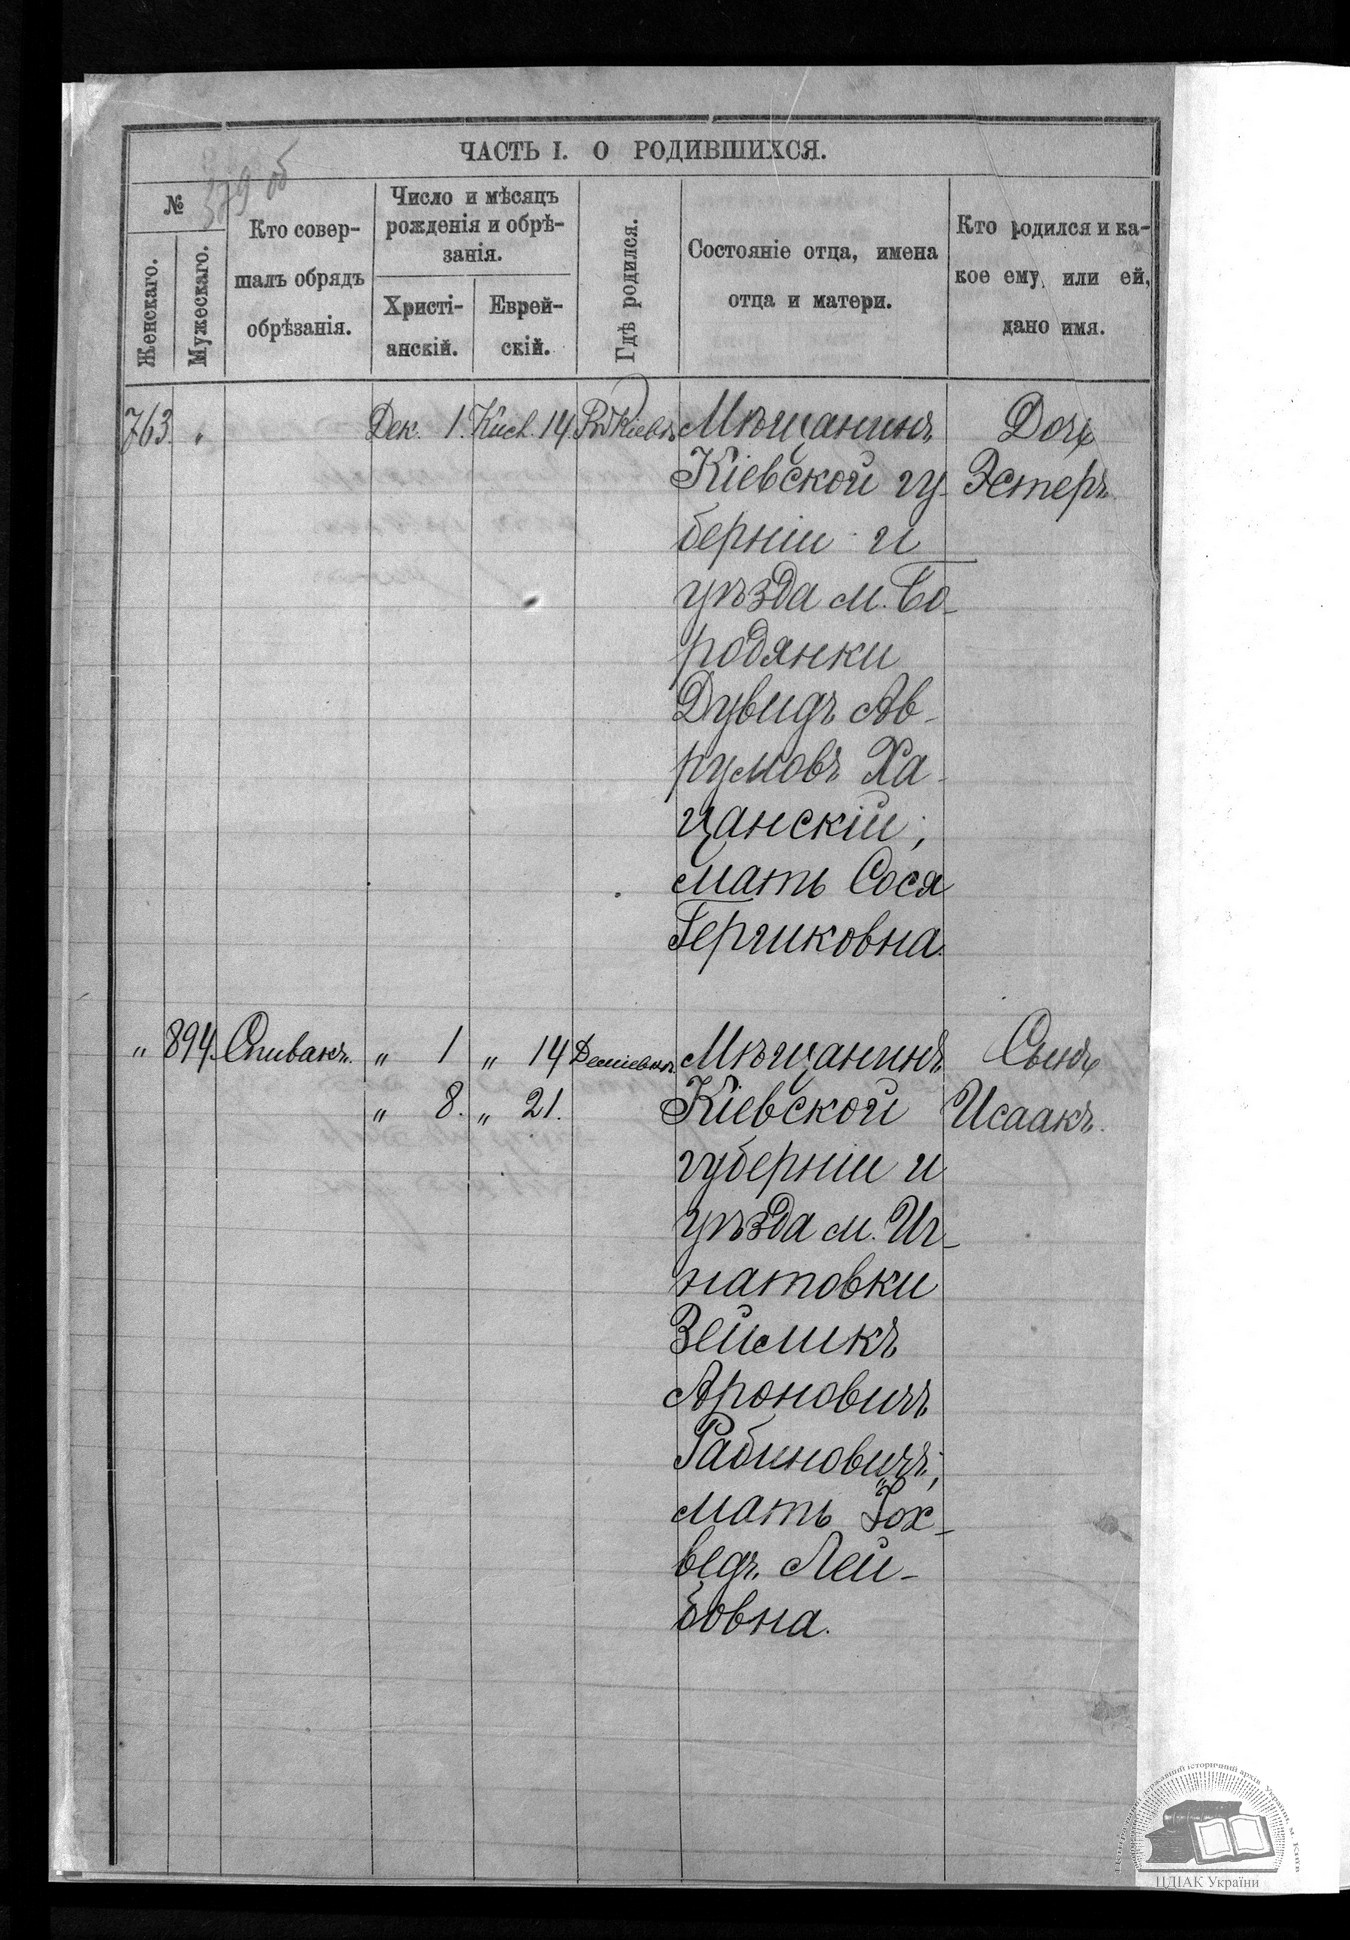 ЧАСТЬ I. О РОДИВШИХСЯ.
379 об
№
Женскаго.
Мужескаго.
Кто совер-
шалъ обрядъ
обрѣзанія.
Число и мѣсяцъ
рожденія и обрѣ-
занія.
Христі-
анскій.
Еврей-
скій.
Гдѣ родился.
Состояніе отца, имена
отца и матери.
Кто родился и ка-
кое ему, или ей,
дано имя.
763. „ Дек. 1. Кисл. 14 Въ Кіевѣ Мѣщанинъ Дочь
Кіевской гу- Эстеръ.
берніи и
уѣзда м. Бо-
родянки
Дувидъ Ав-
румовъ Ха-
цанскій;
мать Сося
Гершковна.
„ 894. Спивакъ. „ 1 „ 14 Деміевкѣ Мѣщанинъ Сынъ
„ 8. „ 21. Кіевской Исаакъ.
губерніи и
уѣзда м. Иг-
натовки
Зейликъ
Ароновичъ
Рабиновичъ;
мать Іох-
ведъ Лей-
бовна.
ЦДІАК України